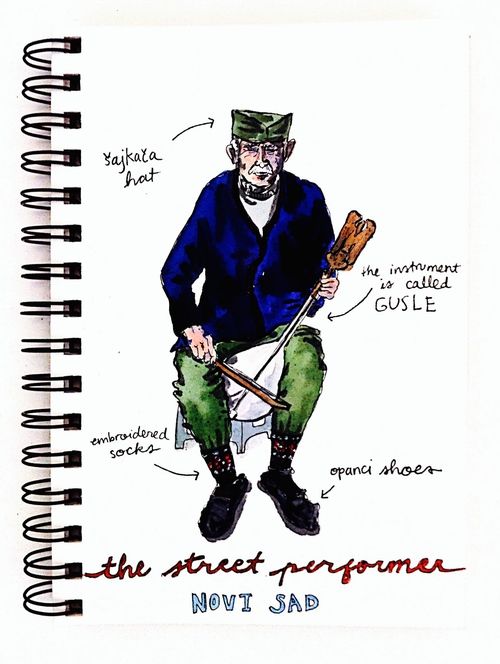 šajkača
hat
the instrument
is called
GUSLE
embroidered
socks
opanci shoes
the street performer
NOVI SAD